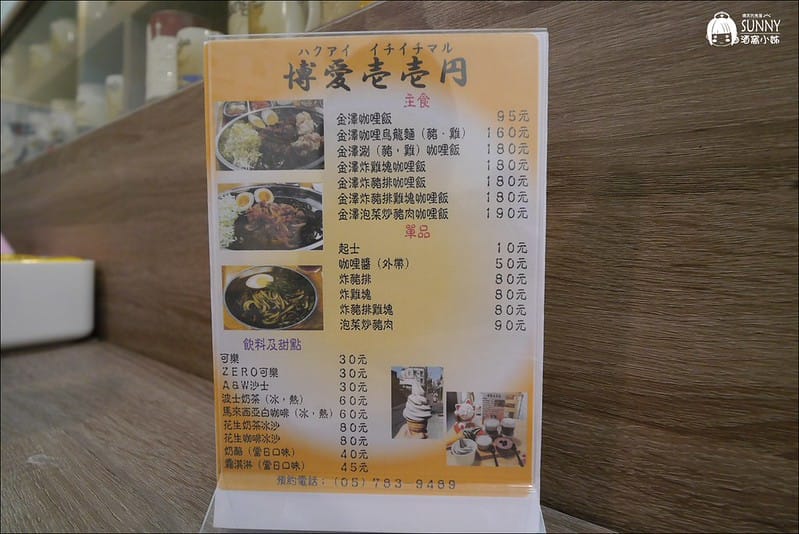 SUNNY
酒窩小姊
ハクアイ イチイチマル
博愛壱壱円
主食
金澤咖哩飯 95元
金澤咖哩烏龍麵（豬．雞） 160元
金澤涮（豬，雞）咖哩飯 180元
金澤炸雞塊咖哩飯 180元
金澤炸豬排咖哩飯 180元
金澤炸豬排雞塊咖哩飯 180元
金澤泡菜炒豬肉咖哩飯 190元
單品
起士 10元
咖哩醬（外帶） 50元
炸豬排 80元
炸雞塊 80元
炸豬排雞塊 80元
泡菜炒豬肉 90元
飲料及甜點
可樂 30元
ZERO可樂 30元
A&W沙士 30元
波士奶茶（冰，熱） 60元
馬來西亞白咖啡（冰，熱） 60元
花生奶茶冰沙 80元
花生咖啡冰沙 80元
奶酪（當日口味） 40元
霜淇淋（當日口味） 45元
預約電話：（05）783-9489